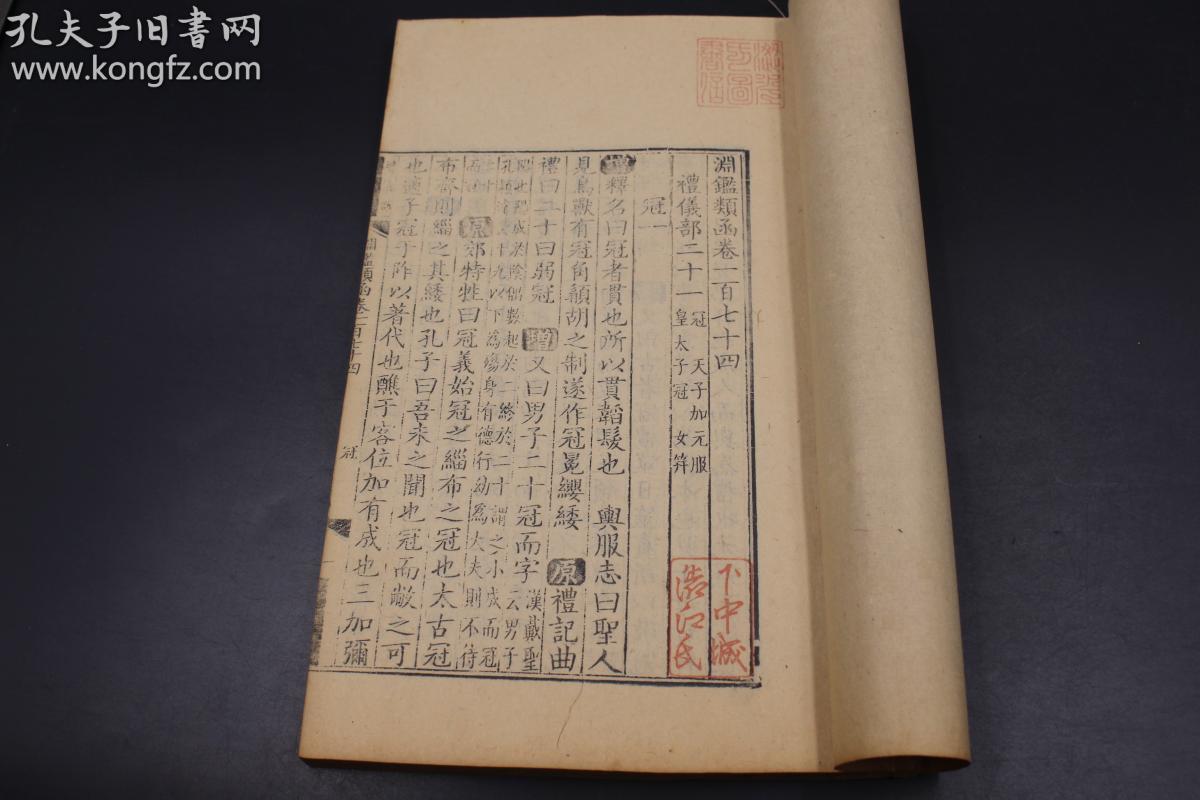 孔夫子旧书网
www.kongfz.com
淵鑑類函卷一百七十四
禮儀部二十一
冠 天子加元服
皇太子冠 女笄
冠一
增釋名曰冠者貫也所以貫韜髮也 輿服志曰聖人
見鳥獸有冠角䫇胡之制遂作冠冕纓緌 原禮記曲
禮曰二十曰弱冠 增又曰男子二十冠而字 漢戴聖
云男子
十九以下為殤身有德行幼為大夫則不待
原郊特牲曰冠義始冠之緇布之冠也太古冠
布齊則緇之其緌也孔子曰吾未之聞也冠而敝之可
也適子冠于阼以著代也醮于客位加有成也三加彌
淵鑑類函卷一百七十四
冠